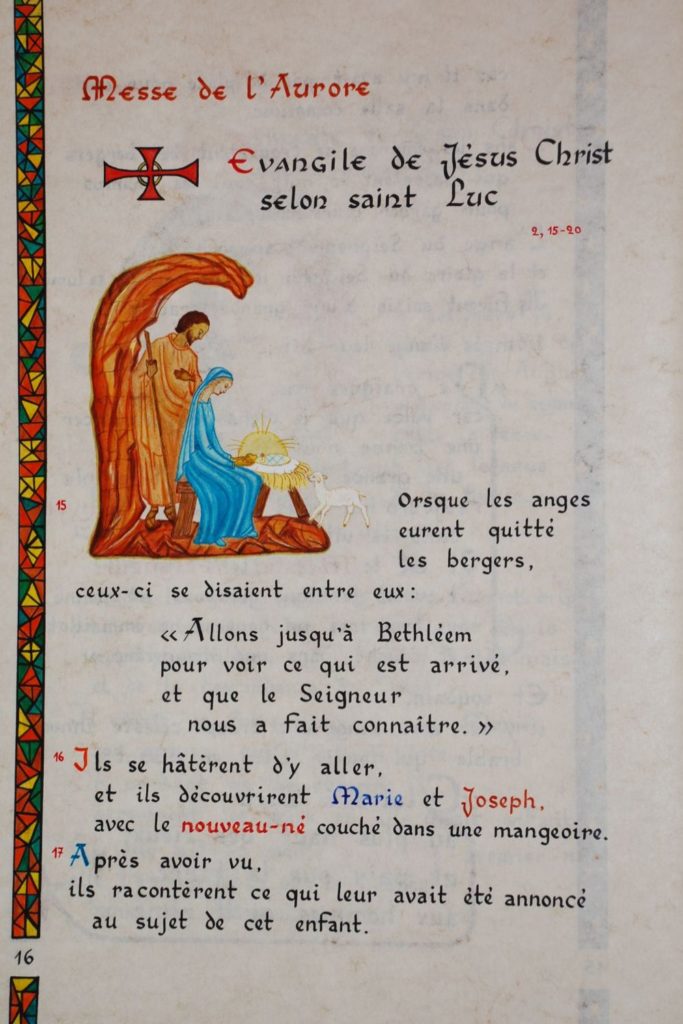 Messe de l'Aurore
Evangile de Jésus Christ
selon saint Luc
2, 15-20
15 orsque les anges
eurent quitté
les bergers,
ceux-ci se disaient entre eux:
«Allons jusqu'à Bethléem
pour voir ce qui est arrivé,
et que le Seigneur
nous a fait connaître.»
16 Ils se hâtèrent d'y aller,
et ils découvrirent Marie et Joseph,
avec le nouveau-né couché dans une mangeoire.
17 Après avoir vu,
ils racontèrent ce qui leur avait été annoncé
au sujet de cet enfant.
16